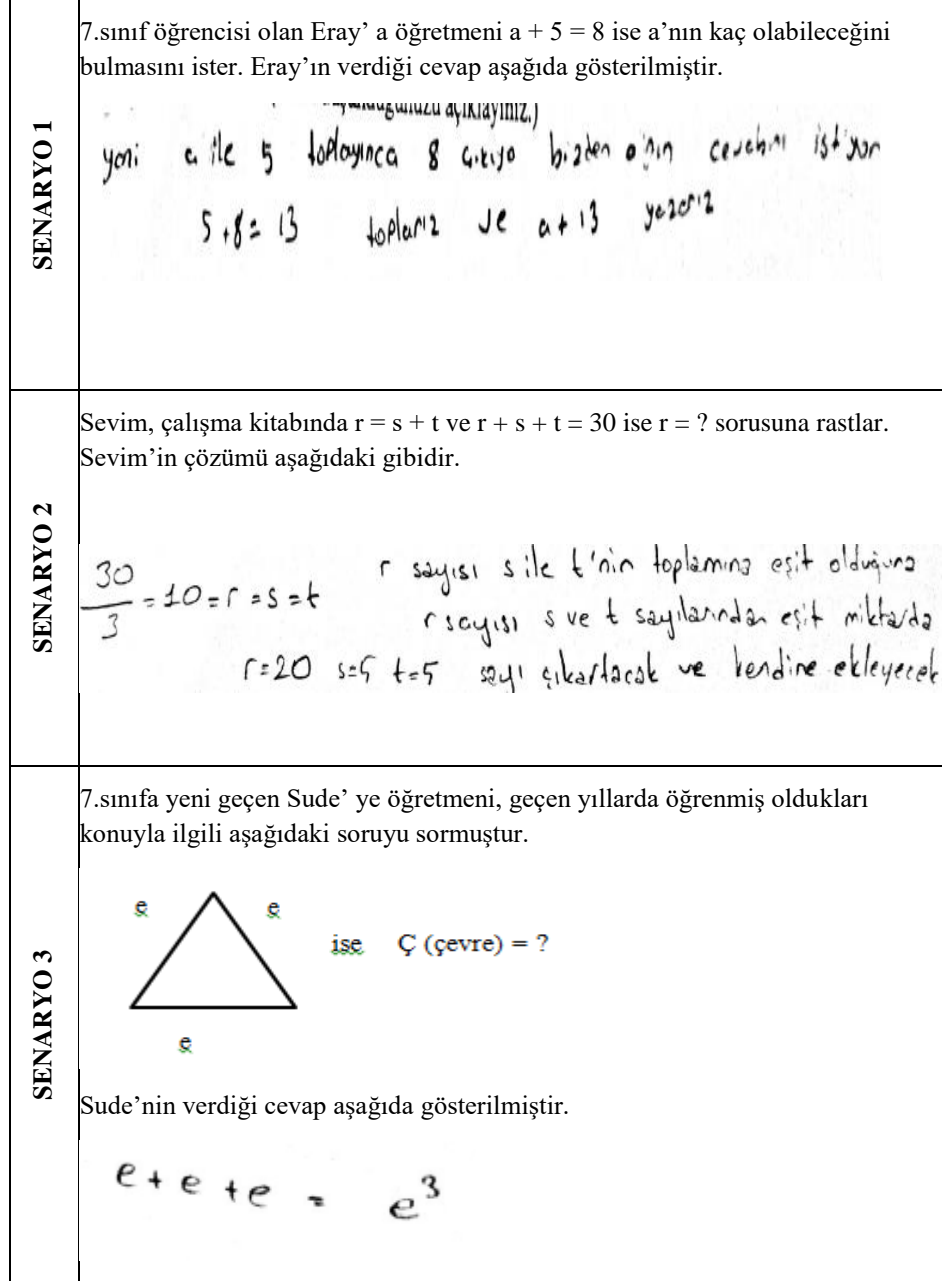 SENARYO 1
7.sınıf öğrencisi olan Eray’ a öğretmeni a + 5 = 8 ise a’nın kaç olabileceğini
bulmasını ister. Eray’ın verdiği cevap aşağıda gösterilmiştir.
açıklayınız.)
yani a ile 5 toplayınca 8 çıkıyo bizden a'nın cevabını istiyor
5+8= 13 toplarız ve a+13 yazarız
SENARYO 2
Sevim, çalışma kitabında r = s + t ve r + s + t = 30 ise r = ? sorusuna rastlar.
Sevim’in çözümü aşağıdaki gibidir.
30/3 = 10 = r = s = t
r sayısı s ile t'nin toplamına eşit olduğuna
r sayısı s ve t sayılarından eşit miktarda
r=20 s=5 t=5 sayı çıkartacak ve kendine ekleyecek
SENARYO 3
7.sınıfa yeni geçen Sude’ ye öğretmeni, geçen yıllarda öğrenmiş oldukları
konuyla ilgili aşağıdaki soruyu sormuştur.
e e
ise Ç (çevre) = ?
e
Sude’nin verdiği cevap aşağıda gösterilmiştir.
e + e + e = e³